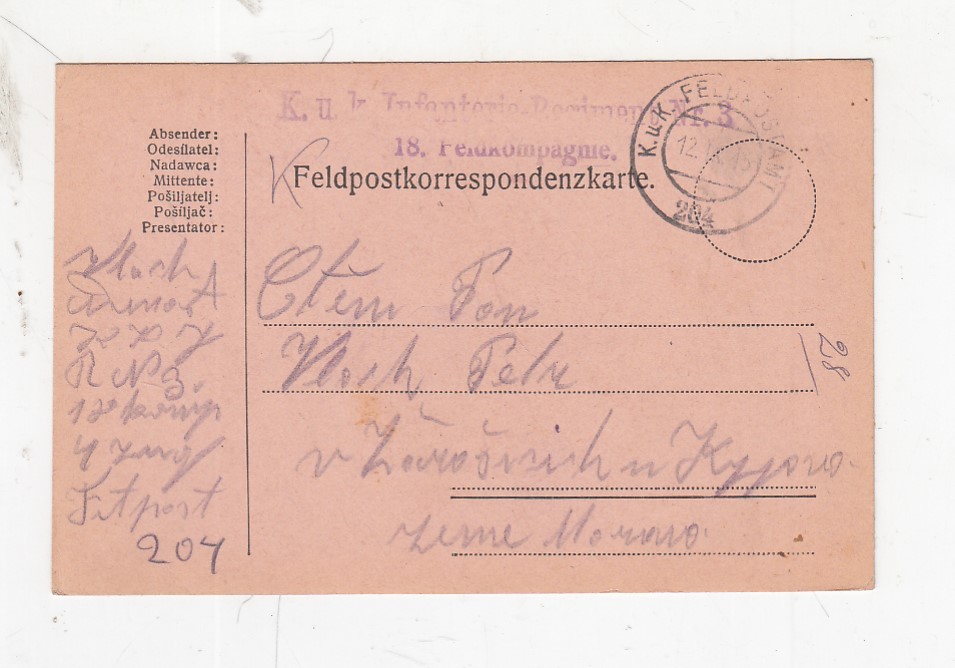 K. u. k. Infanterie-Regiment Nr. 3
18. Feldkompagnie.
K. u. K. FELDPOSTAMT
12. 15
204
Absender:
Odesílatel:
Nadawca:
Mittente:
Pošiljatelj:
Pošiljač:
Presentator:
Feldpostkorrespondenzkarte.
Vlach
R N 3.
18 komp
4 zug
Fitpost
204
Ctěm Pan
Vlach Petr
28
v Žarošicich u Kyjova
zeme Morava